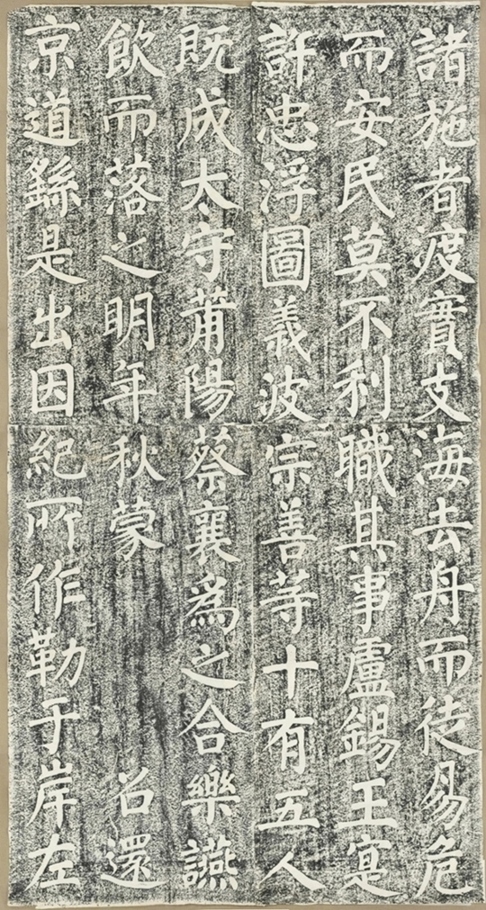 諸施者渡實支海去舟而徒易危
而安民莫不利職其事盧錫王寔
許忠浮圖義波宗善等十有五人
既成太守莆陽蔡襄爲之合樂讌
飲而落之明年秋蒙召還
京道繇是出因紀所作勒于岸左